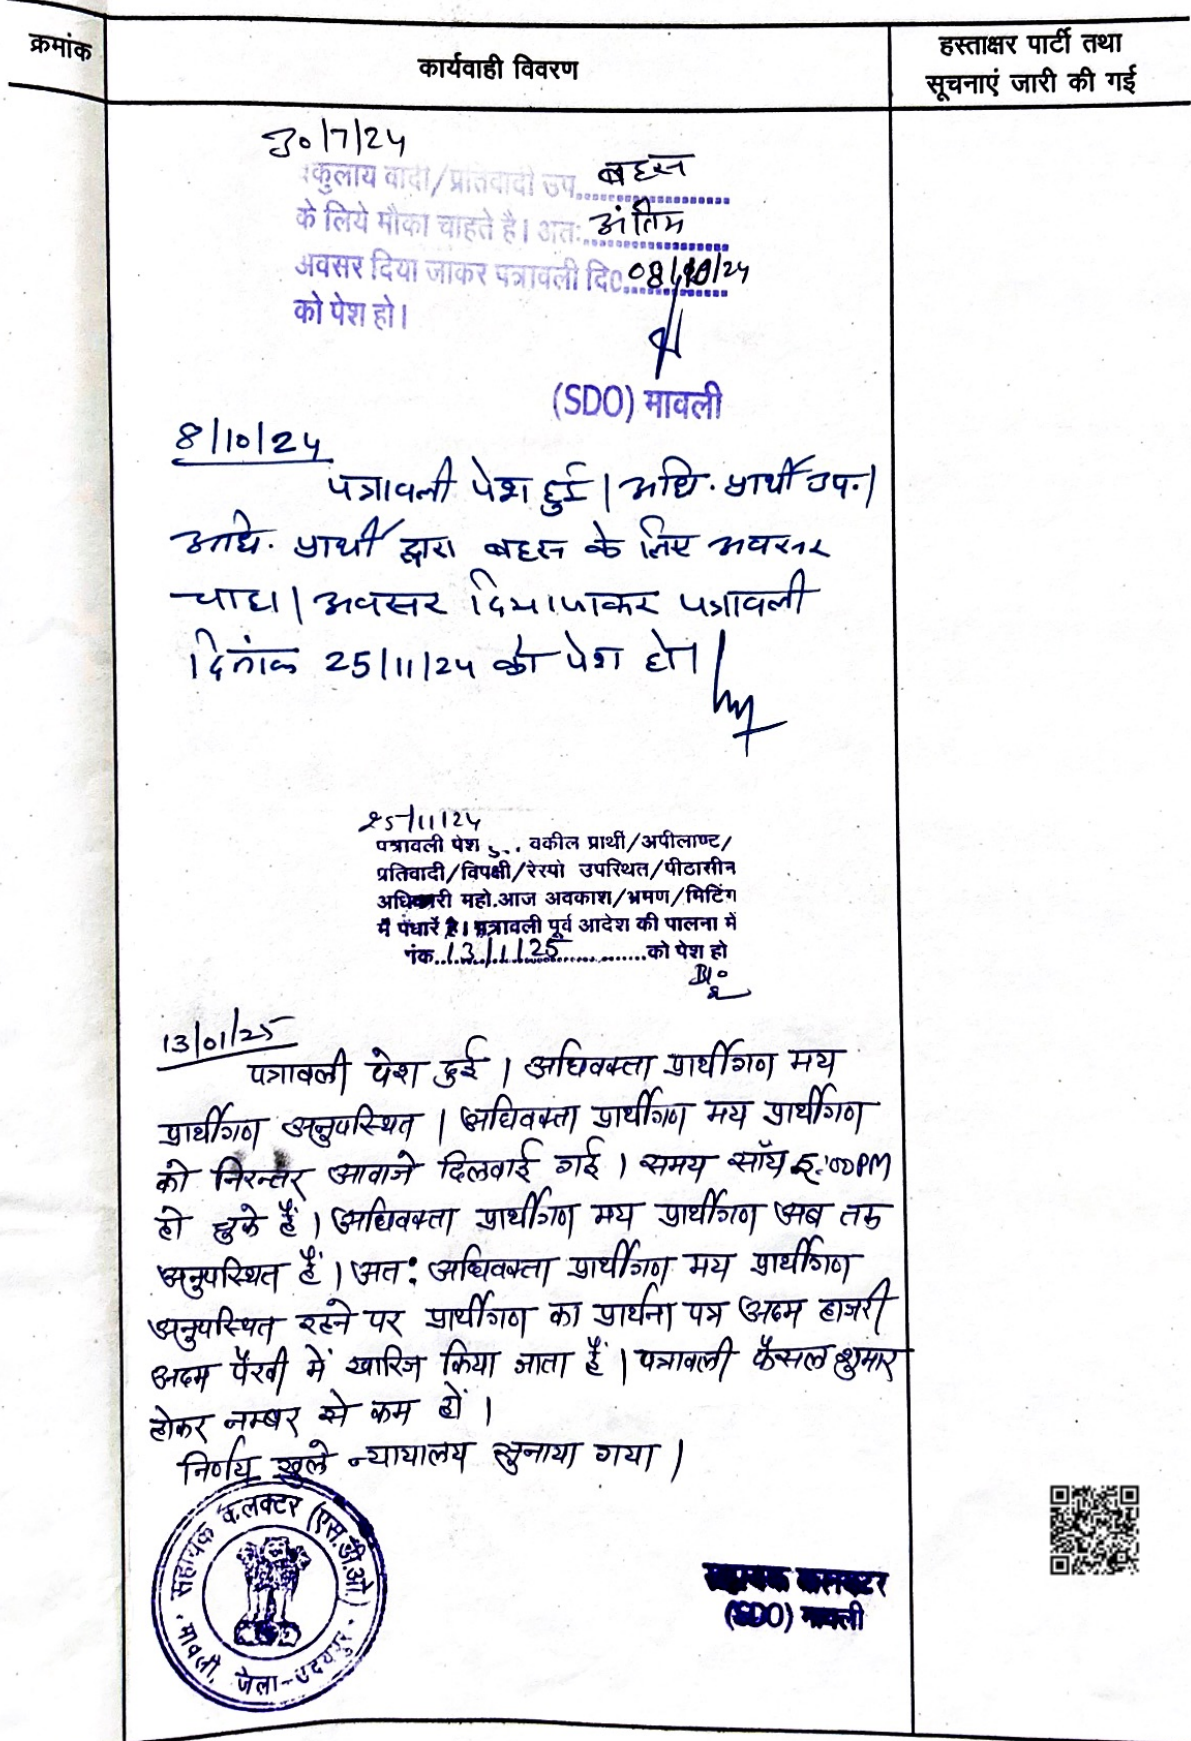 क्रमांक
कार्यवाही विवरण
हस्ताक्षर पार्टी तथा
सूचनाएं जारी की गई
30/7/24
वादी/प्रतिवादी उप. बहस
के लिये मौका चाहते है। अतः अंतिम
अवसर दिया जाकर पत्रावली दि0 08/10/24
को पेश हो।
(SDO) मावली
8/10/24
पत्रावली पेश हुई। अधि. प्रार्थी उप.।
अधि. प्रार्थी द्वारा बहस के लिए अवसर
चाहा। अवसर दिया जाकर पत्रावली
दिनांक 25/11/24 को पेश हो।
25/11/24
पत्रावली पेश वकील प्रार्थी/अपीलाण्ट/
प्रतिवादी/विपक्षी/रेस्पो उपस्थित/पीठासीन
अधिकारी महो.आज अवकाश/भ्रमण/मिटिंग
में पधारें है। पत्रावली पूर्व आदेश की पालना में
नंक..13/1/25..को पेश हो
13/01/25
पत्रावली पेश हुई। अधिवक्ता प्रार्थीगण मय
प्रार्थीगण अनुपस्थित। अधिवक्ता प्रार्थीगण मय प्रार्थीगण
को निरन्तर आवाजे दिलवाई गई। समय सॉय 5:00PM
हो चुके हैं। अधिवक्ता प्रार्थीगण मय प्रार्थीगण अब तक
अनुपस्थित हैं। अतः अधिवक्ता प्रार्थीगण मय प्रार्थीगण
अनुपस्थित रहने पर प्रार्थीगण का प्रार्थना पत्र अदम हाजरी
अदम पैरवी में खारिज किया जाता हैं। पत्रावली फैसल शुमार
होकर नम्बर से कम हों।
निर्णय खुले न्यायालय सुनाया गया।
सहायक कलक्टर (एस.डी.ओ.)
मावली, जिला-उदयपुर
सहायक कलक्टर
(SDO) मावली